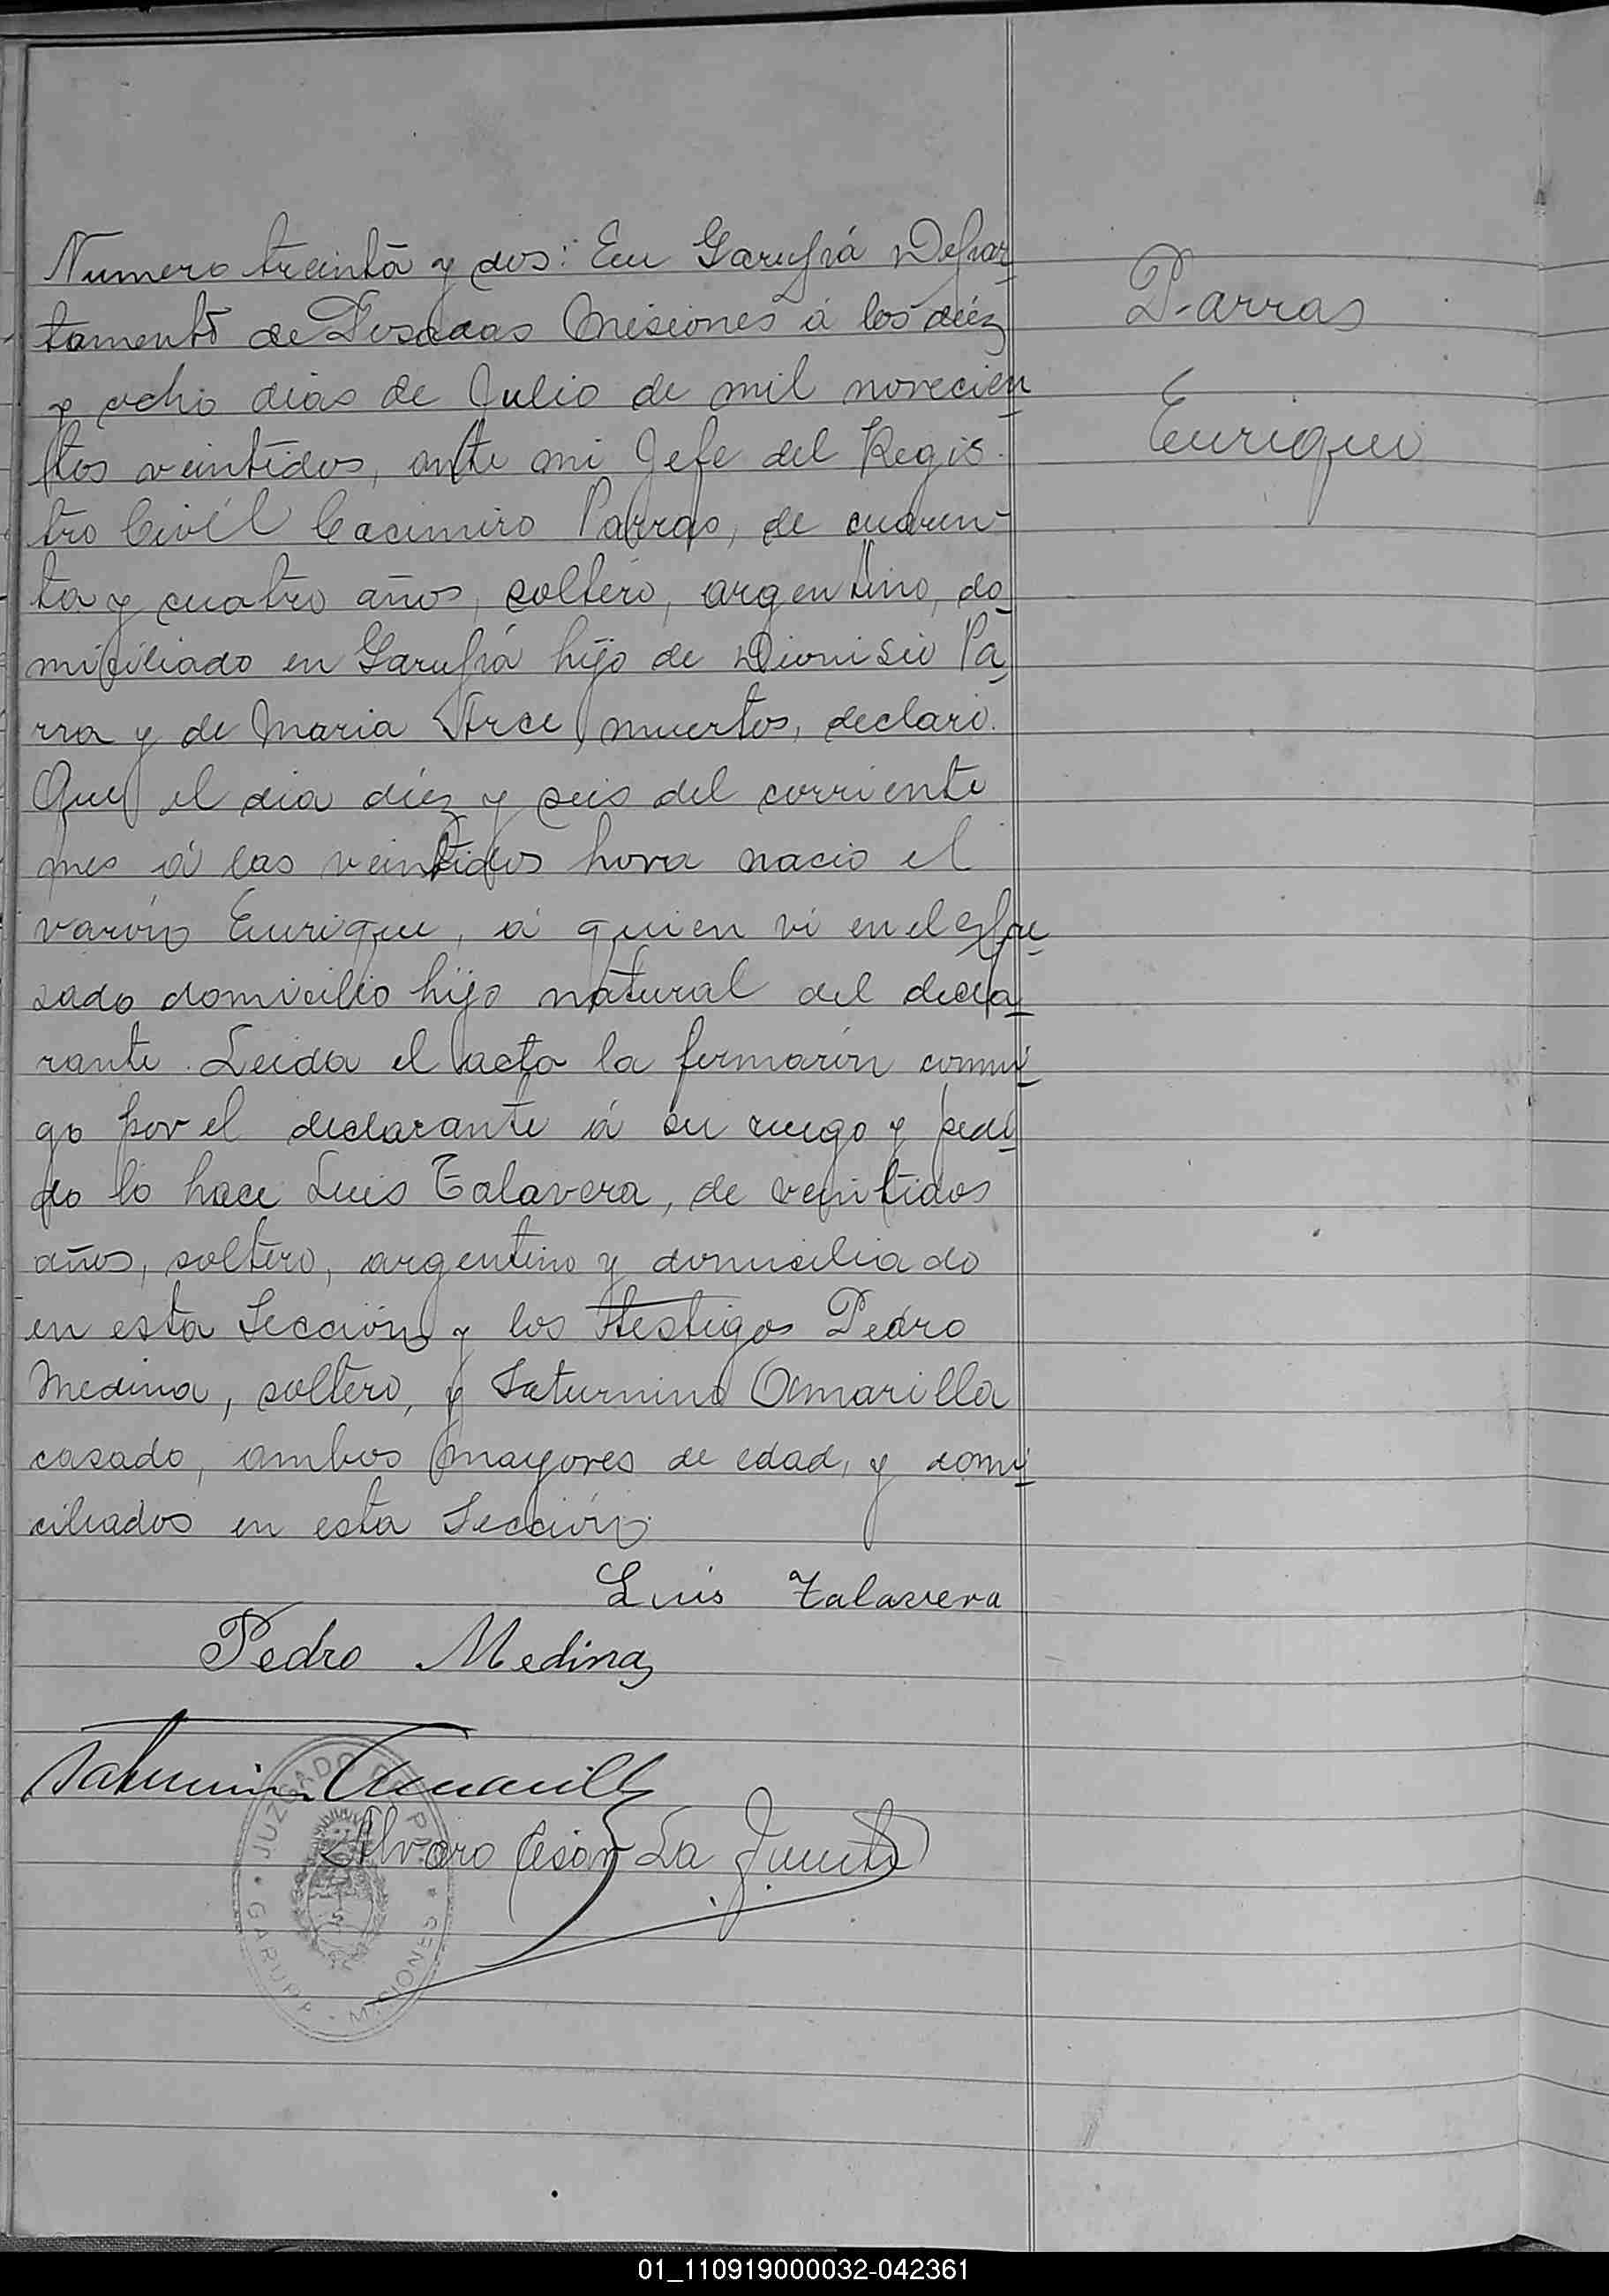 Numero treinta y dos: En Garupá Depar-
tamento de Posadas Misiones á los diéz
y ocho dias de Julio de mil novecien-
tos veintidos, ante mi Jefe del Regis-
tro Civíl Casimiro Parras, de cuaren-
ta y cuatro años, soltero, argentino, do-
miciliado en Garupá hijo de Dionisio Pa-
rra y de Maria Arce, muertos, declaró.
Que el dia diéz y seis del corriente
mes á las veintidos hora nacio el
varón Enrique, á quien ví en el espre-
sado domicilio hijo natural del decla-
rante. Leida el acta la firmarón conmi-
go por el declarante á su ruego y pedi-
do lo hace Luis Talavera, de veintidos
años, soltero, argentino y domiciliado
en esta Sección y los testigos Pedro
Medina, soltero, y Saturnino Amarilla
casado, ambos mayores de edad, y domi-
ciliados en esta Sección.
Parras
Enrique
Luis Talavera
Pedro Medina
Saturnino Amarilla
Alvaro Cesar La Fuente
JUZGADO DE PAZ
GARUPA - MISIONES
01_110919000032-042361